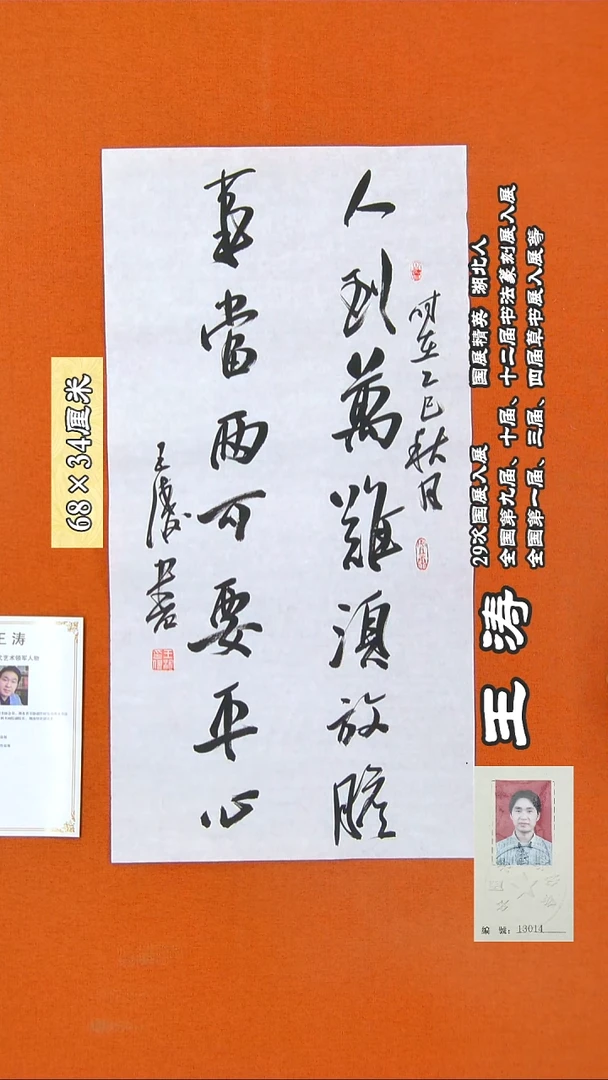 人到萬難須放膽
事當兩可要平心
時在乙巳秋月
王濤書
68×34厘米
王涛
29次国展入展 国展精英 湖北人
全国第九届、十届、十二届书法篆刻展入展
全国第一届、三届、四届草书展入展等
編號：13014
王涛
艺术领军人物